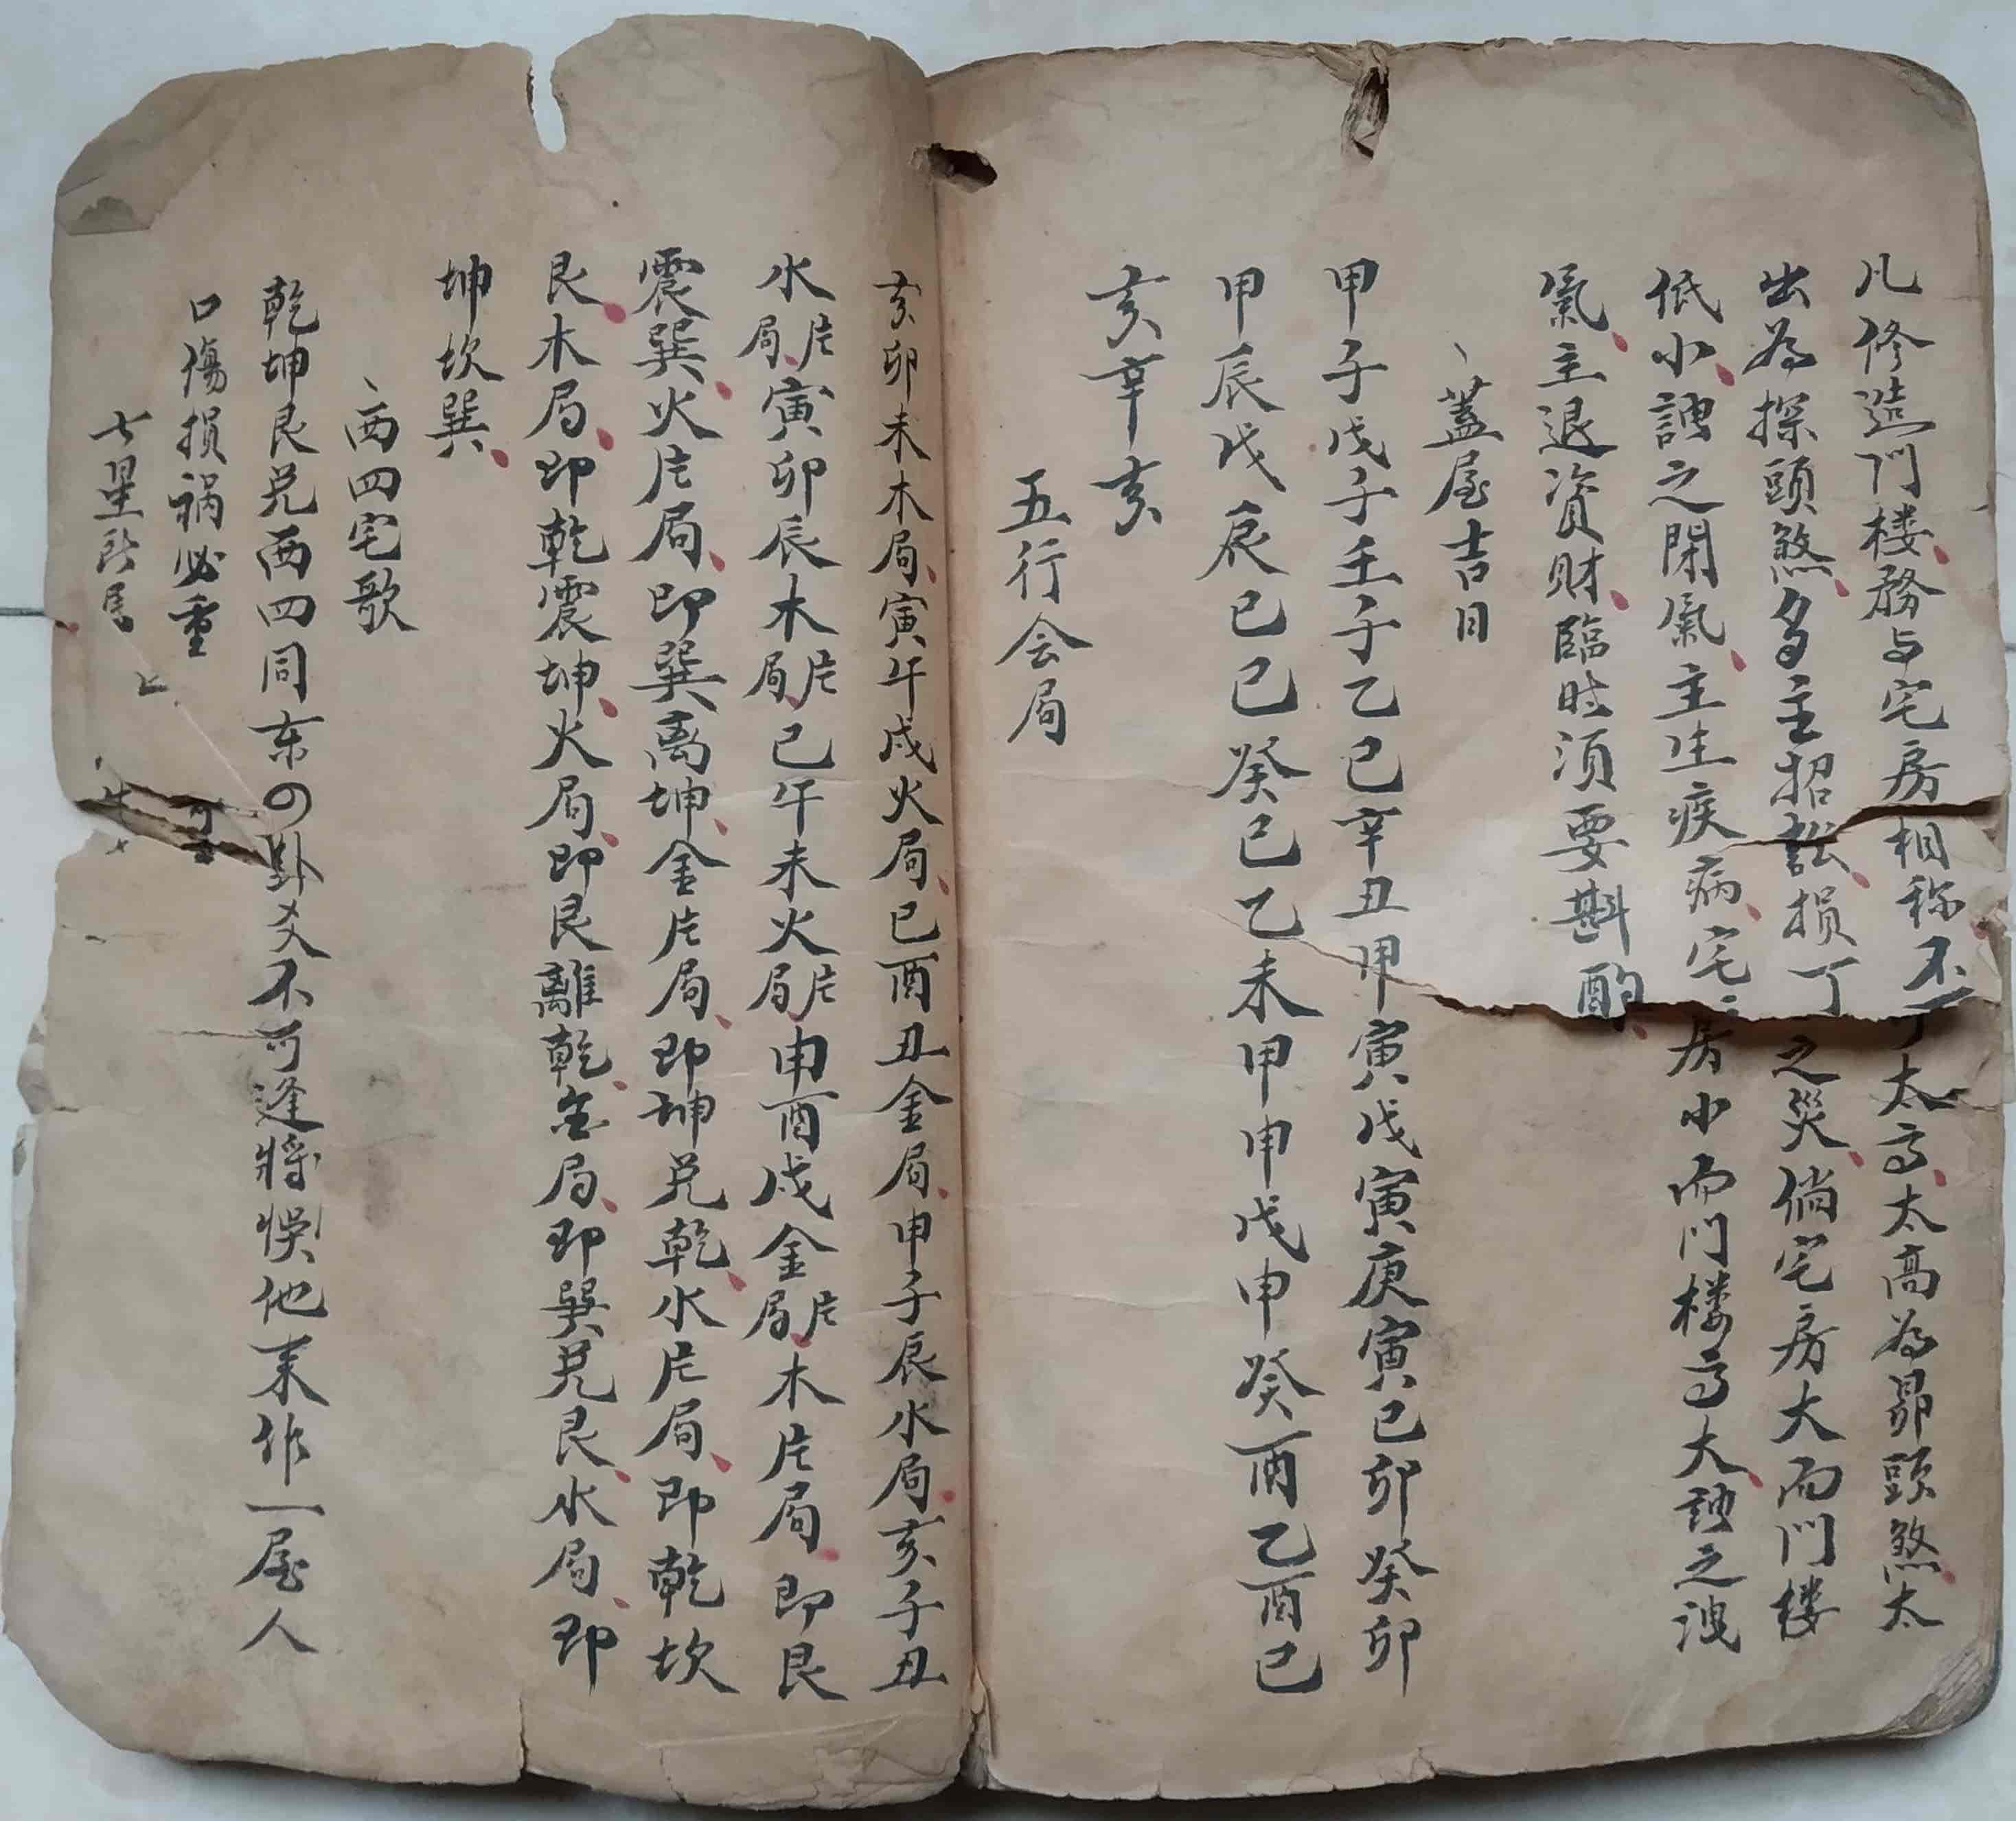 凡修造門楼務与宅房相称不可太高太高為昴頭煞太
出為探頭煞多主招訟損丁之災倘宅房大而門楼
低小謂之閉氣主生疾病宅房小而門楼高大謂之洩
氣主退資財臨时須要斟酌
蓋屋吉日
甲子戊子壬子乙巳辛丑甲寅戊寅庚寅己卯癸卯
甲辰戊辰己巳癸巳乙未甲申戊申癸酉乙酉己
亥辛亥
五行会局
亥卯未木局寅午戌火局巳酉丑金局申子辰水局亥子丑
水片局寅卯辰木片局巳午未火片局申酉戌金片局木片局即艮
震巽火片局即巽离坤金片局即坤兑乾水片局即乾坎
艮木局即乾震坤火局即艮離乾金局即巽兑艮水局即
坤坎巽
西四宅歌
乾坤艮兑西四同东四卦爻不可逢將悞他来作一屋人
口傷損祸必重
七星